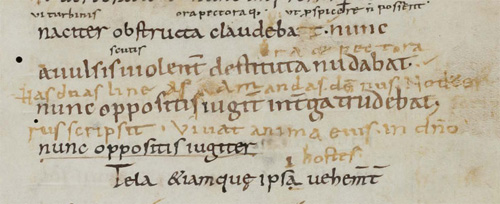 ui turbinis ora pectoraq. ut pspicere ñ possent
naciter obstructa claudebat. nunc
scutis ora & pectora
auulsis uiolent destituta nudabat.
has duas lineas amandas duus Notker
nunc oppositis iugit intga trudebat,
rus scripsit. Viuat anima eius in dño
nunc oppositis iugiter
hostes
Tela &iamque ipsa uehemt